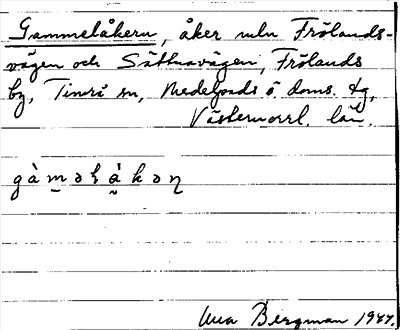 Gammelåkern, åker mln Frölands-
vägen och Sättnavägen, Frölands
by, Timrå sn, Medelpads ö doms. tg,
Västernorrl. län.
gàməlåkən
Bergman 1947.